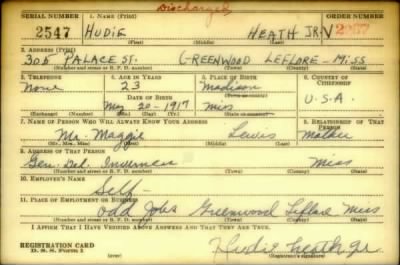 Discharged
SERIAL NUMBER 1. NAME (Print) ORDER NUMBER
2547 HUDIE HEATH JR. V
(First) (Middle) (Last)
2. ADDRESS (Print)
305 PALACE ST. GREENWOOD LEFLORE - MISS
(Number and street or R. F. D. number) (Town) (County) (State)
3. TELEPHONE 4. AGE IN YEARS 5. PLACE OF BIRTH 6. COUNTRY OF CITIZENSHIP
None 23 Madison
DATE OF BIRTH U.S.A.
May 20-1917 Miss
(Mo.) (Day) (Yr.) (State or country)
7. NAME OF PERSON WHO WILL ALWAYS KNOW YOUR ADDRESS 8. RELATIONSHIP OF THAT PERSON
Maggie Lewis
(Mr., Mrs., Miss) (First) (Middle) (Last)
9. ADDRESS OF THAT PERSON
Gen. Del. Inverness Miss
(Number and street or R. F. D. number) (Town) (County) (State)
10. EMPLOYER'S NAME
Self
11. PLACE OF EMPLOYMENT OR BUSINESS
Odd Jobs Greenwood Leflore Miss
(Number and street or R. F. D. number) (Town) (County) (State)
I AFFIRM THAT I HAVE VERIFIED ABOVE ANSWERS AND THAT THEY ARE TRUE.
REGISTRATION CARD
D. S. S. FORM 1 (over) Hudie Heath Jr.
(Registrant's signature)